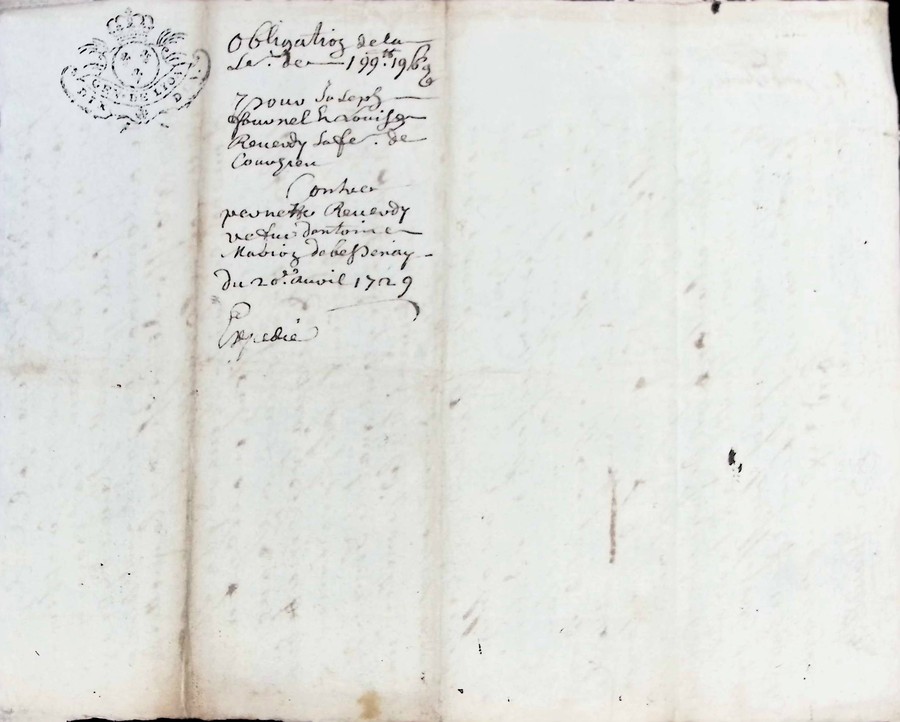 GEN. DE LION
DIX D
Obligation de la
Se. de 199 tt 19 s 6 d
pour Joseph
fournel & Louise
Reverdy sa fe. de
Courzieu
Contre
pernette Reverdy
vefue d'antoine
Marion de bessenay
du 20e. avril 1729
Expedié